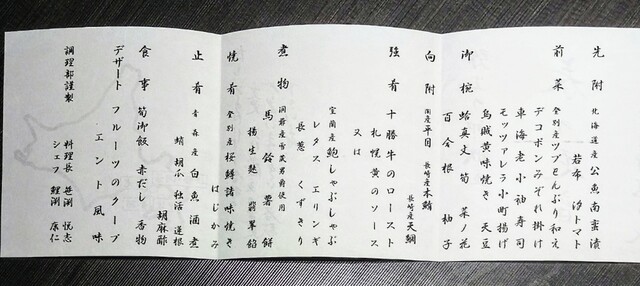 先附 北海道産 公魚南蛮漬
若布 汐トマト
前菜 登別産 ツブとんぶり和え
デコポンみぞれ掛け
車海老小袖寿司
モッツァレラ小町揚げ
烏賊黄味焼き 天豆
御椀 蛤真丈 筍 菜ノ花
百合根 柚子
向附 国産 平目 長崎産 本鮪
長崎産 天鯛
強肴 十勝牛のロースト
札幌黄のソース
又は
室蘭産 鮑しゃぶしゃぶ
レタス エリンギ
長葱 くずきり
煮物 洞爺産雪蔵男爵使用
馬鈴薯餅
揚生麩 翡翠餡
焼肴 登別産 桜鱒諸味焼き
はじかみ
止肴 青森産 白魚酒煮
蛸 胡瓜 独活 蓮根
胡麻酢
食事 筍御飯 赤だし 香物
デザート フルーツのクープ
エント風味
調理部謹製
料理長 笹渕 悦志
シェフ 鯉渕 康仁